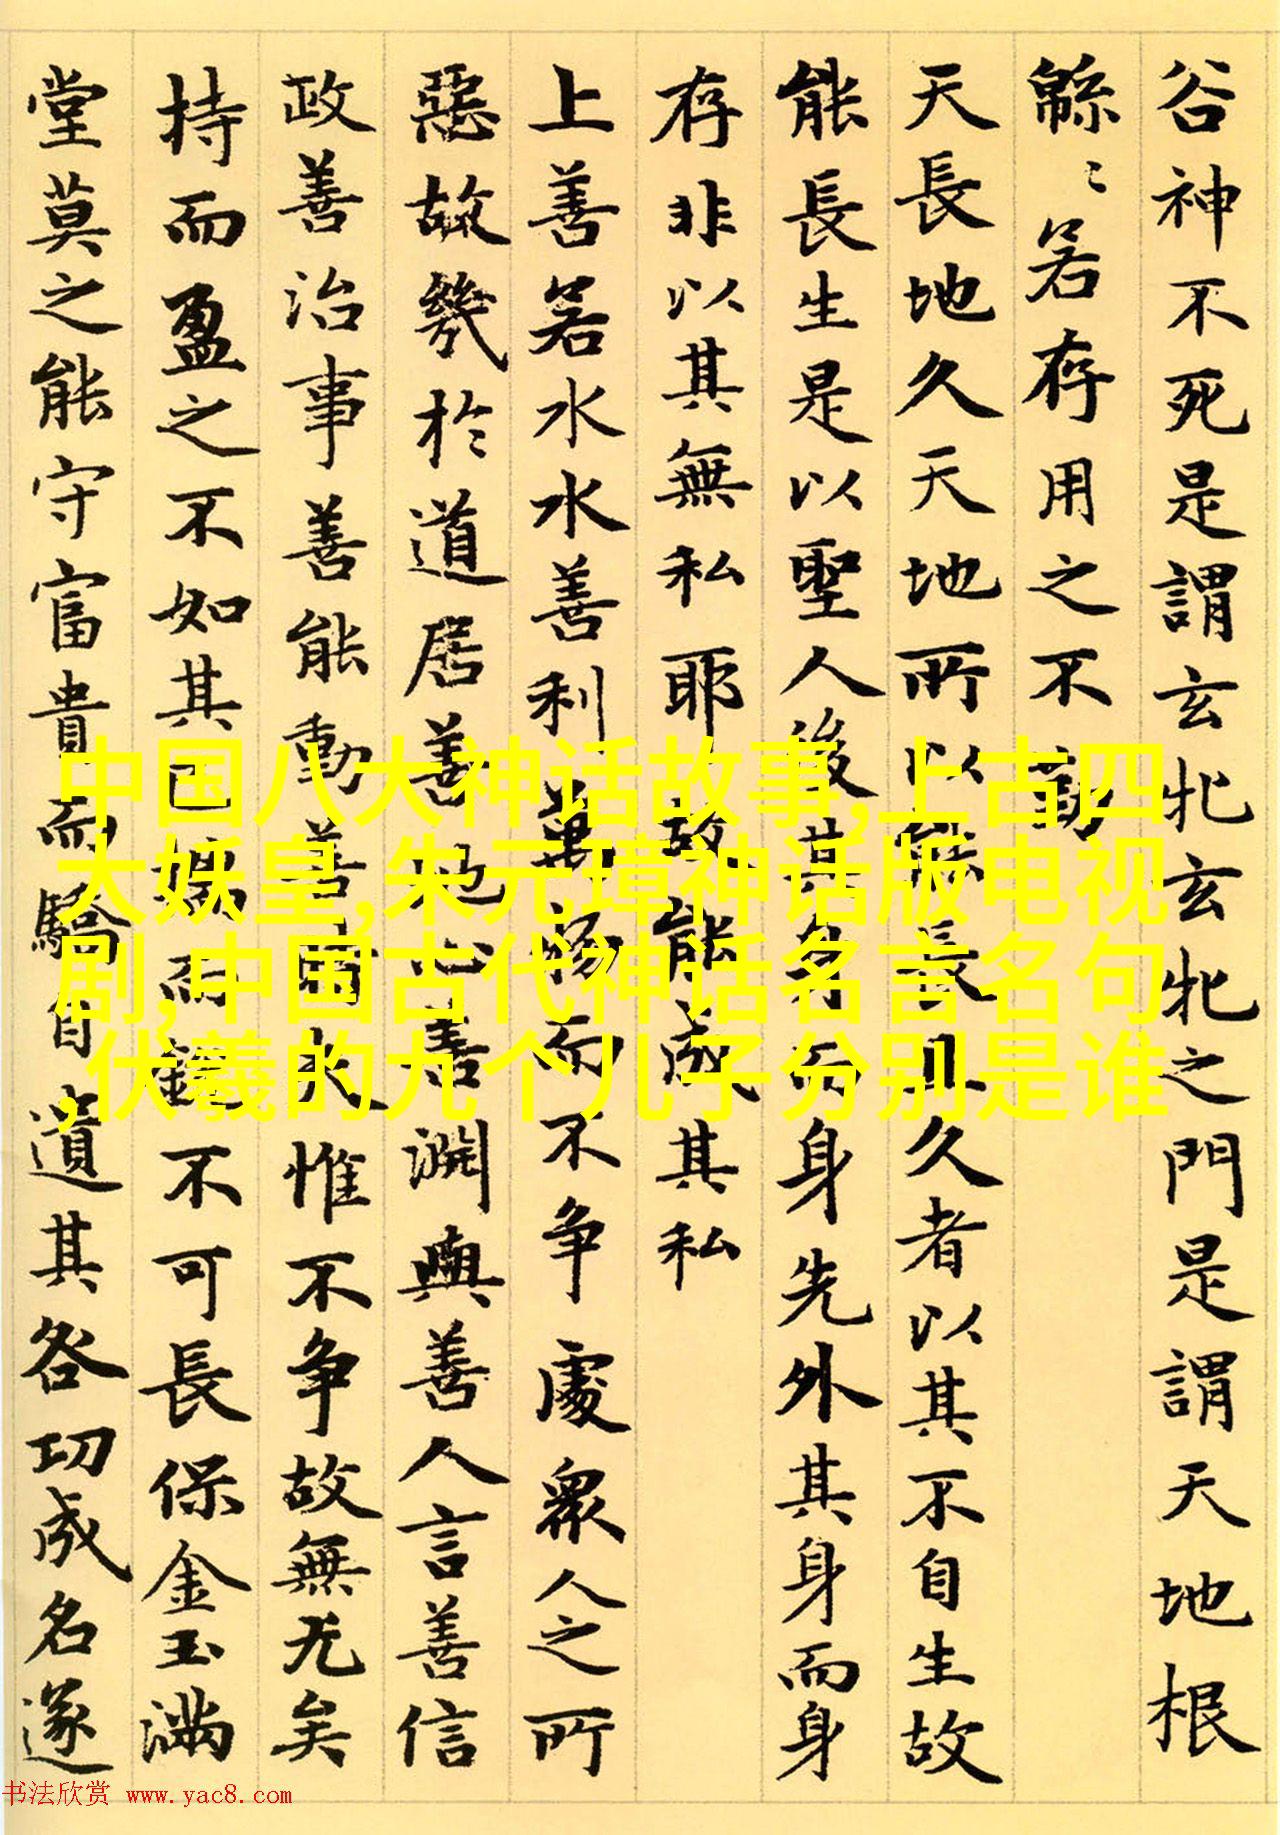 谷神不死是謂玄牝玄牝之門是謂天地根
緜〻若存用之不勤
天長地久天地所以能長且久者以其不自生故
能長生是以聖人後其身而身先外其身而身
存非以其無私耶故能成其私
上善若水水善利萬物而不争處衆人之所
惡故幾於道居善地心善渊與善人言善信
政善治事善能動善時夫惟不争故無尤矣
持而盈之不如其已揣而銳不可長保金玉滿
堂莫之能守富貴而驕自遺其咎功成名遂
中国八大神话故事,上古四
大妖皇,朱元璋神话版电视
剧,中国古代神话名言名句
,伏羲的九个儿子分别是谁
书法欣赏 www.yac8.com